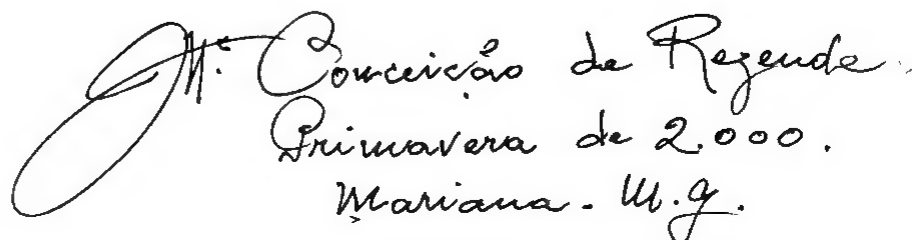 Mª Conceição de Rezende.
Primavera de 2.000.
Mariana. M.g.